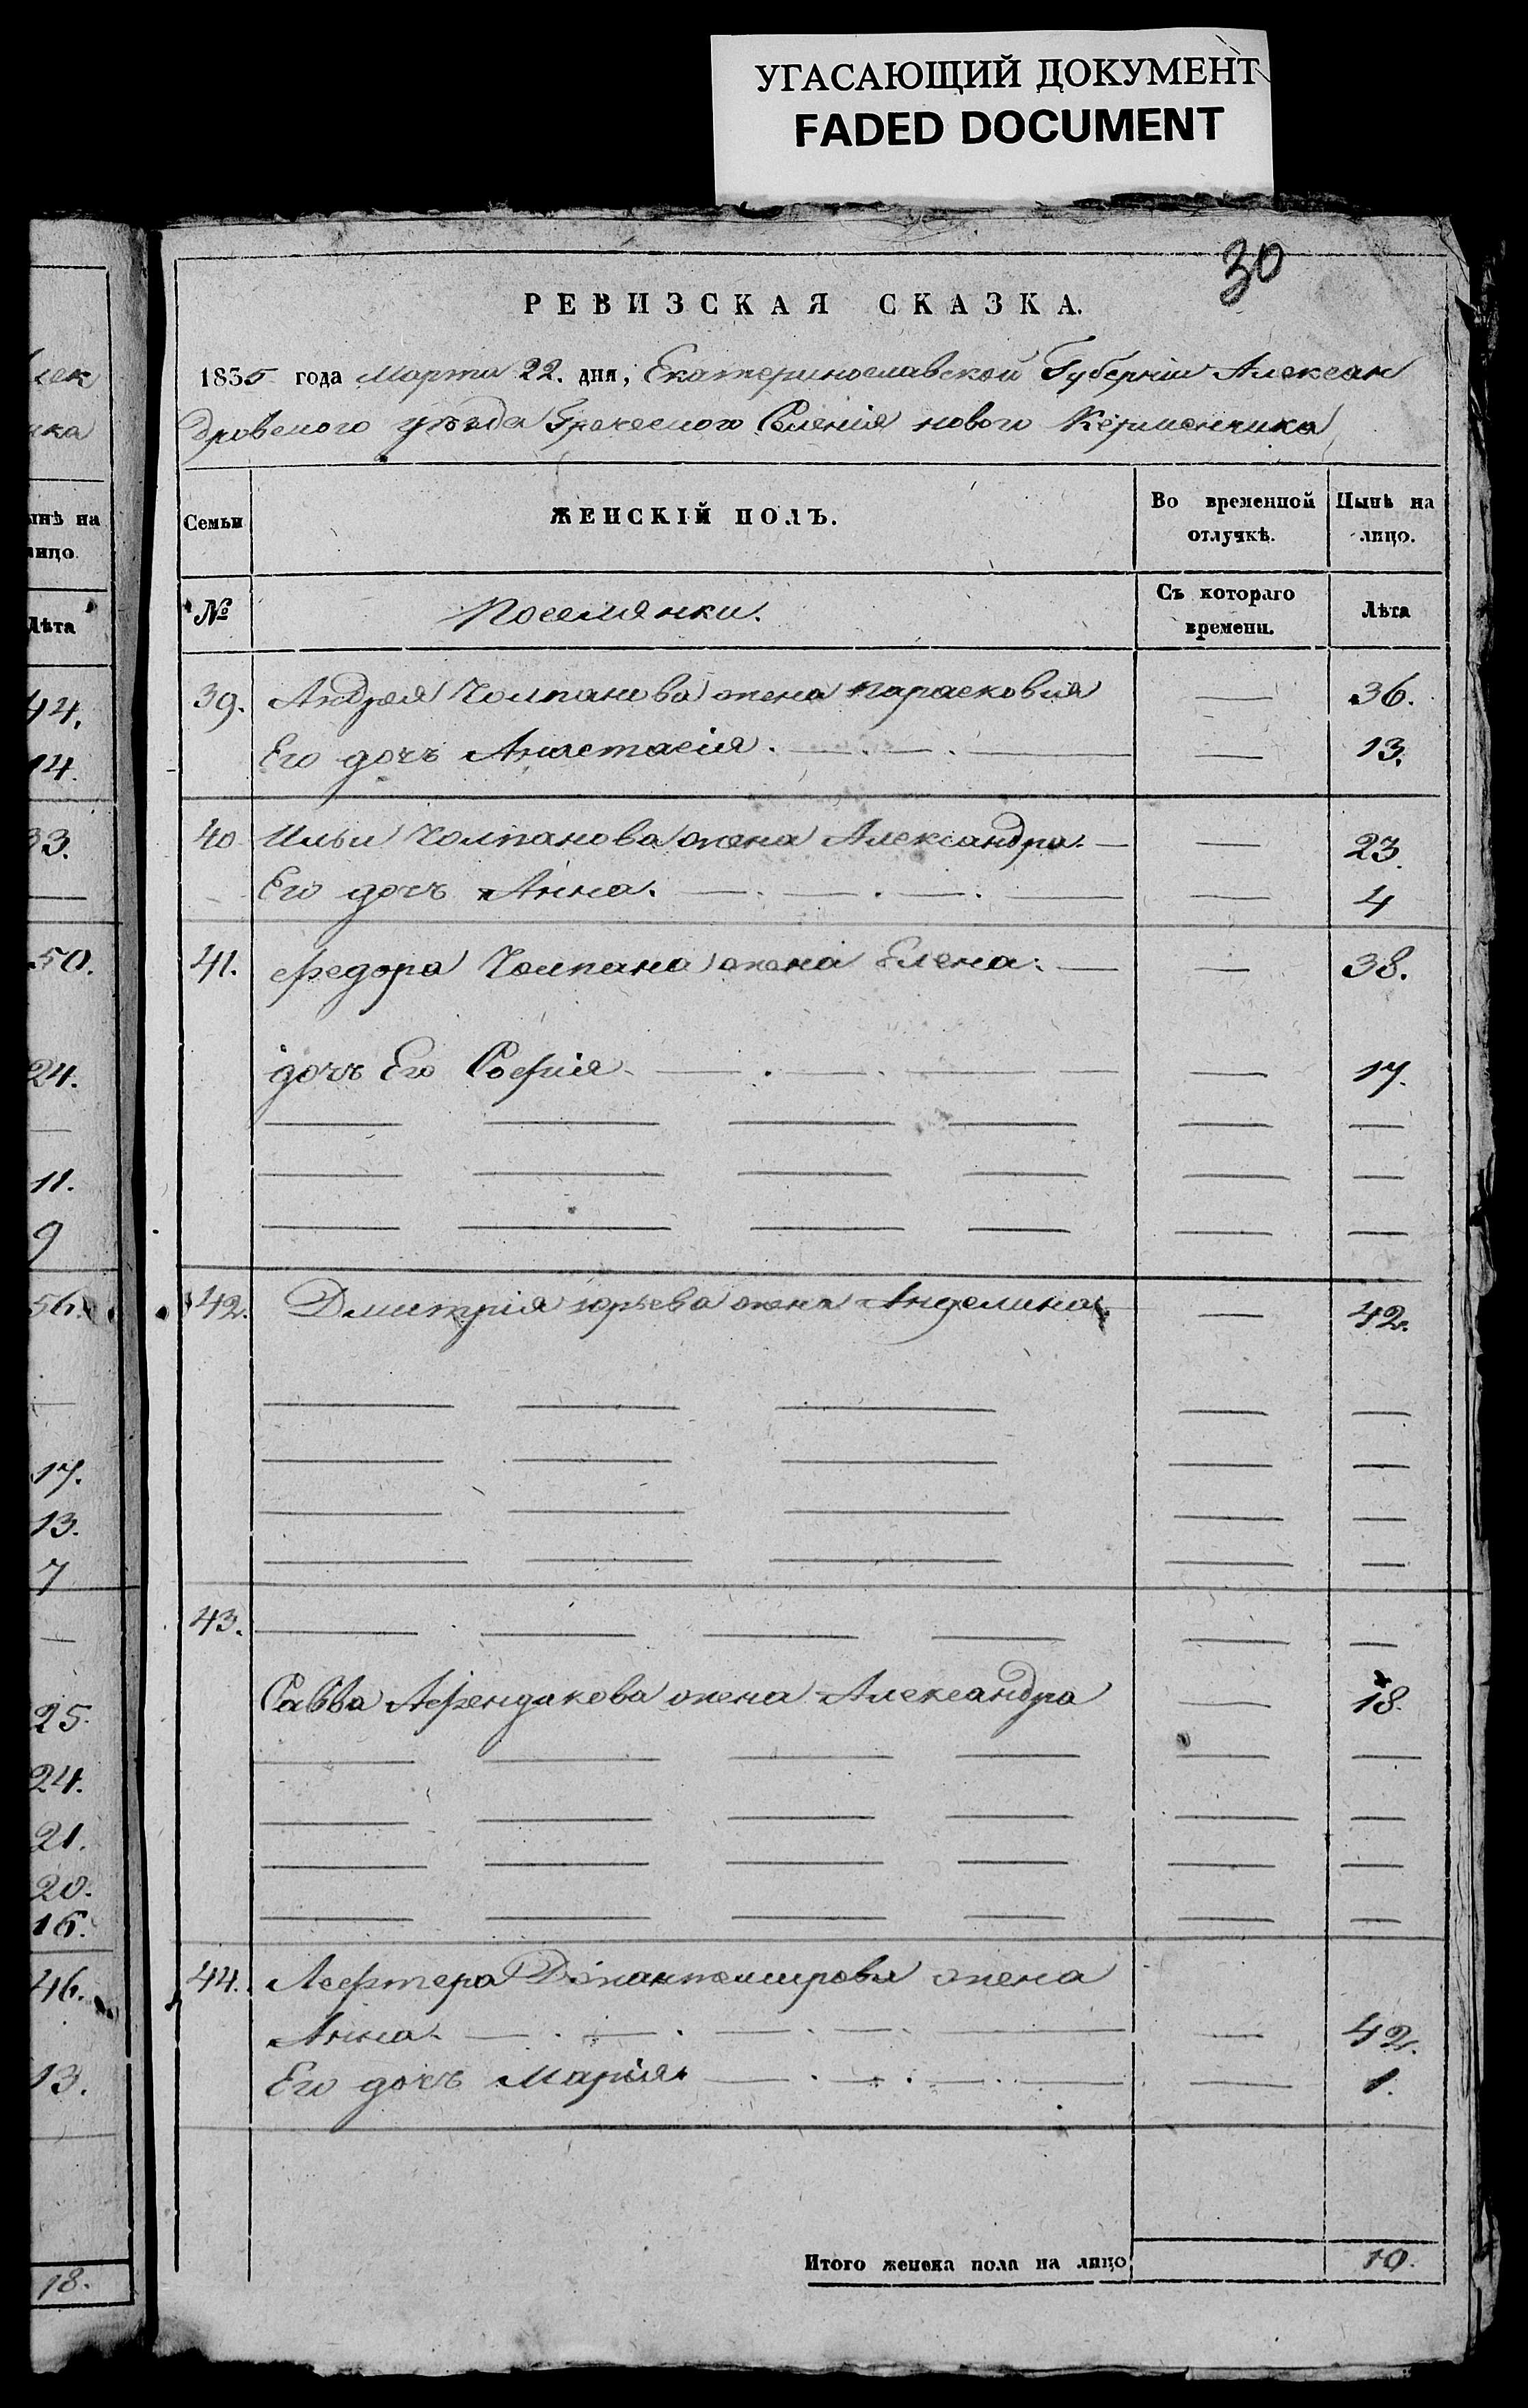 УГАСАЮЩИЙ ДОКУМЕНТ
FADED DOCUMENT
30
РЕВИЗСКАЯ СКАЗКА.
1835 года Марта 22. дня, Екатеринославской Губерніи Алексан
дровского уѣзда Греческого Селенія нового Керменчика
Семьи ЖЕНСКІЙ ПОЛЪ. Во временной отлучкѣ. Нынѣ на лицо.
№ Поселянки. Съ котораго времени. Лѣта
39. Андрея Чолпанова жена Парасковия — 36.
Его дочъ Анастасія. — 13.
40 Ильи Чолпанова жена Александра. — 23.
Его дочъ Анна. — 4
41. Федора Чолпана жена Елена. — 38.
дочъ Его Софія — 17.
42. Дмитрія Юрьева жена Анделина — 42.
43.
Савва Афендикова жена Александра — 18.
44. Лефтера Джантемирова жена
Анна. — 42.
Его дочъ Марія. — 1.
Итого женска пола на лицо 10.
лек
ика
ынѣ на
лицо.
Лѣта
44.
14.
33.
50.
24.
11.
9
56.
17.
13.
7
25.
24.
21.
20.
16.
46.
13.
18.